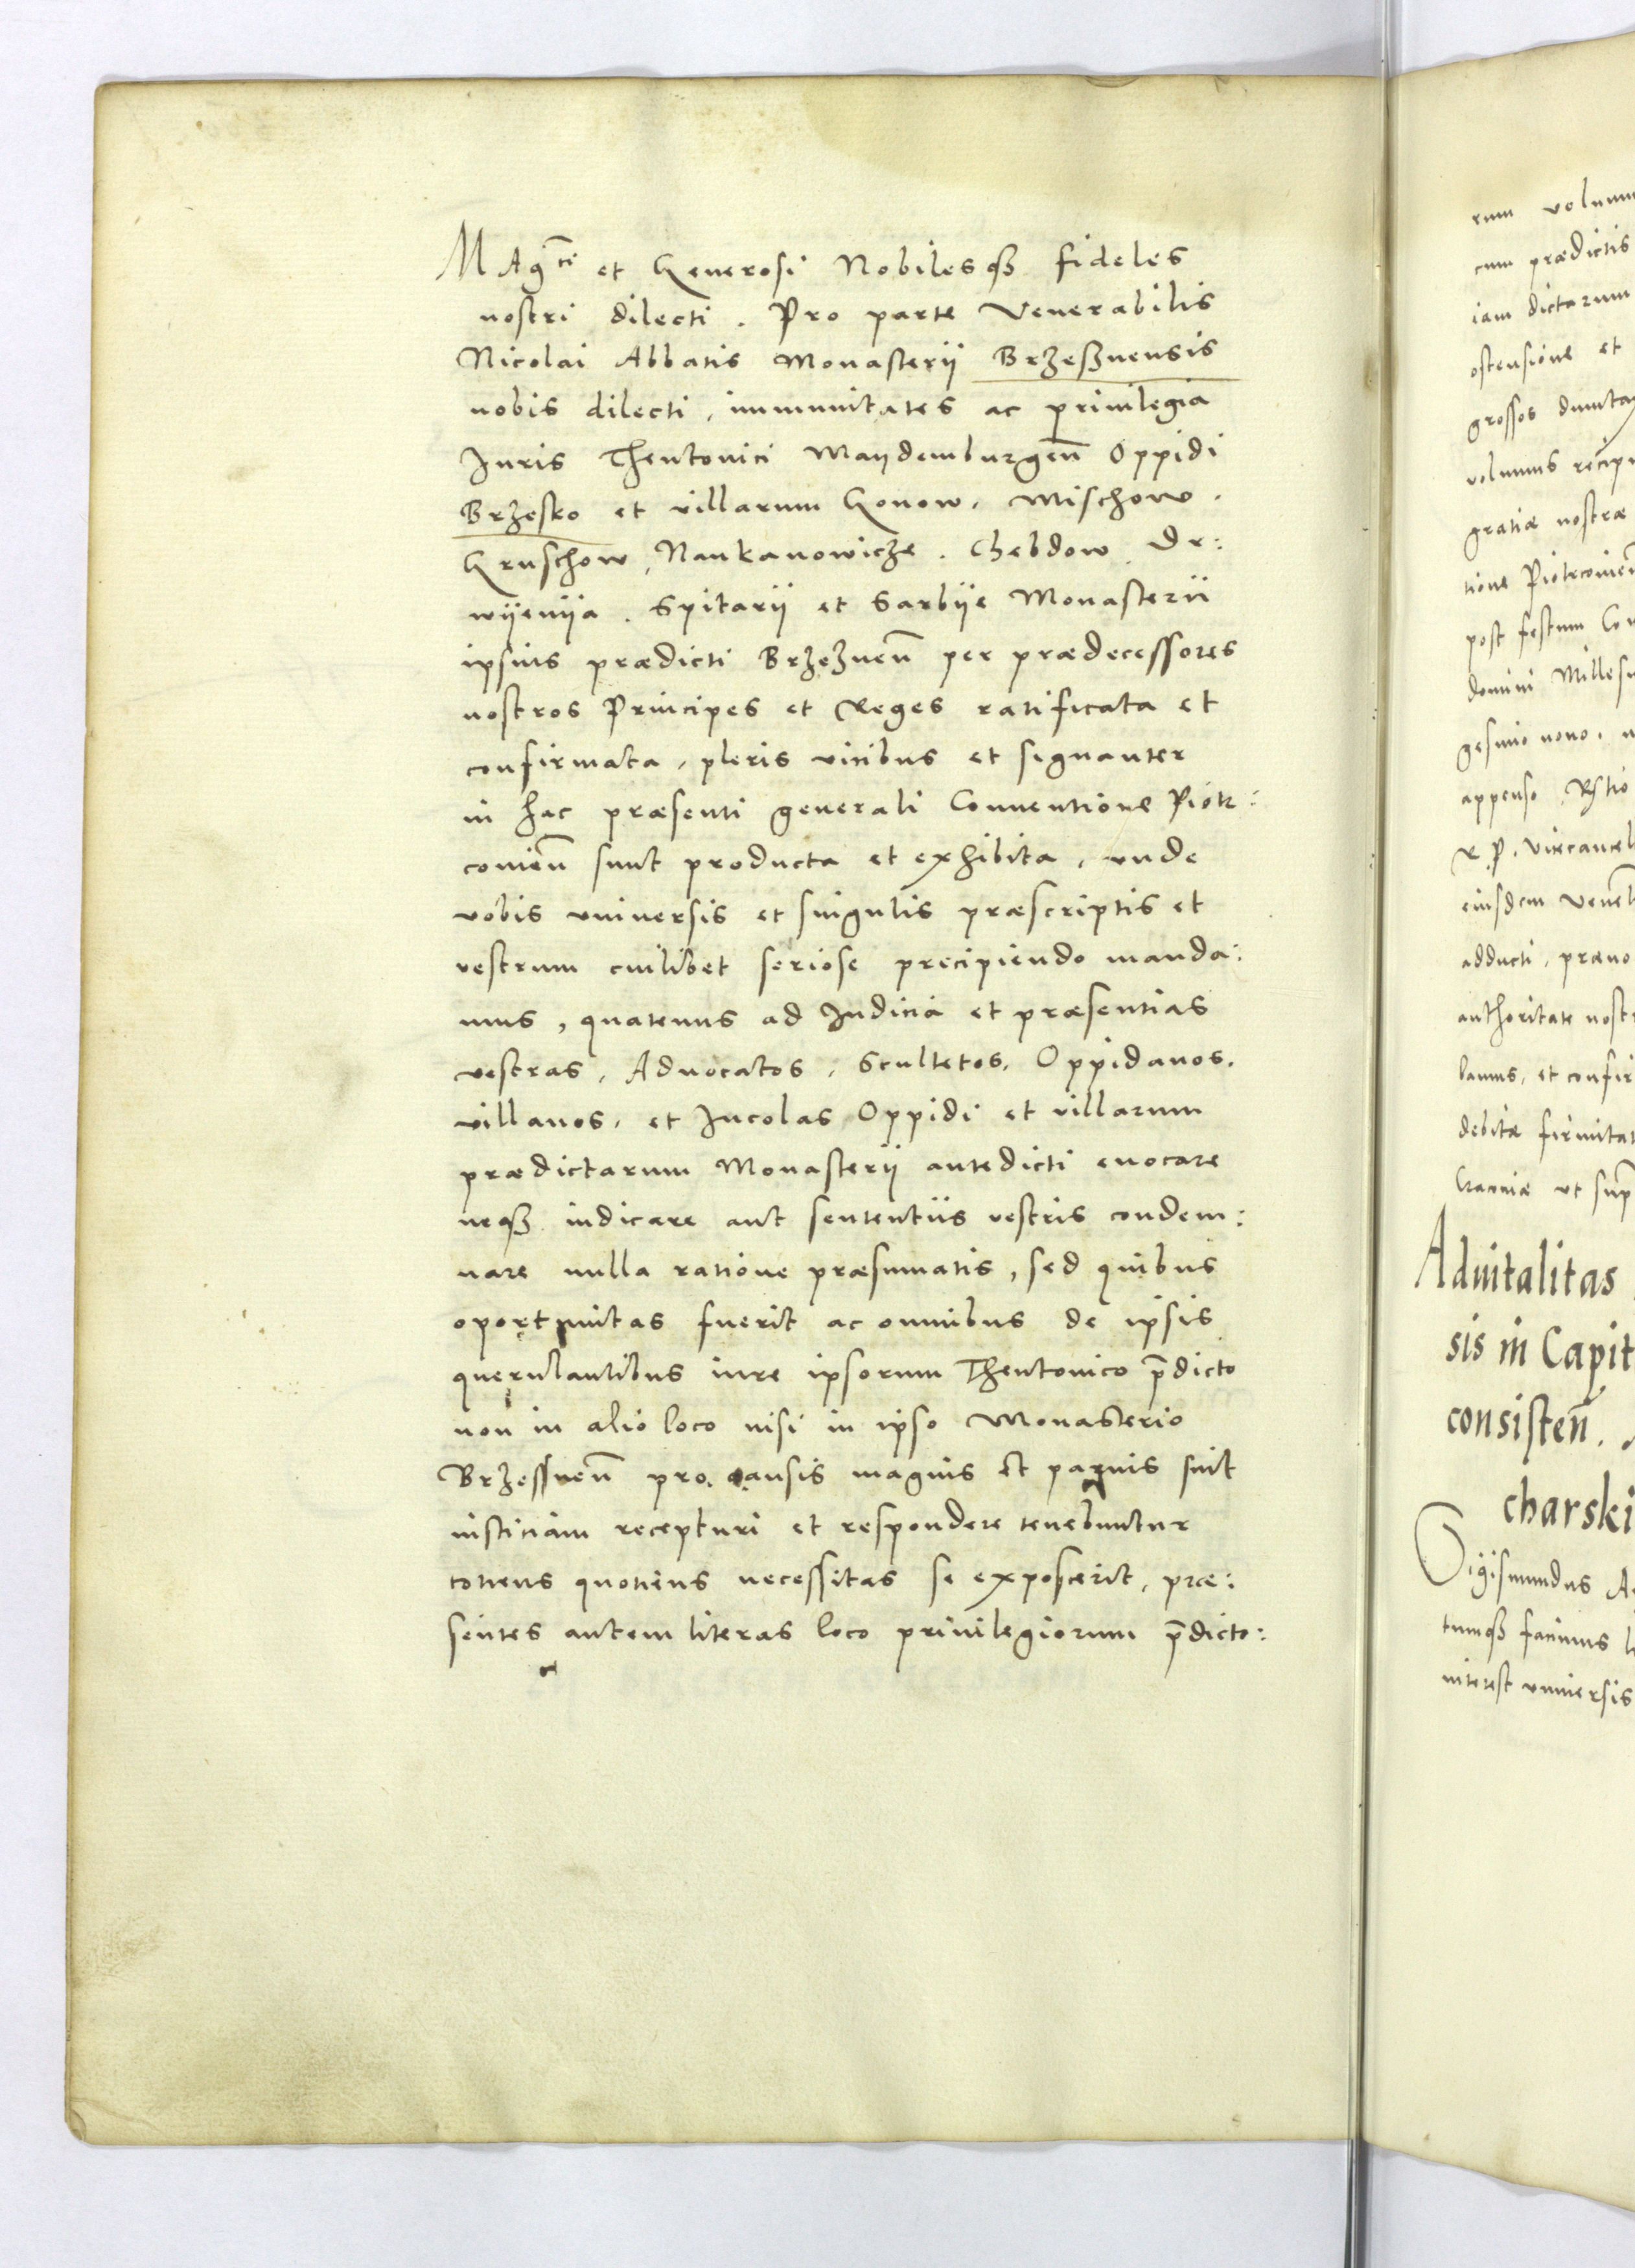 MAg͠ci et Generosi Nobilesqꝫ fideles
nostri dilecti. Pro parte Venerabilis
Nicolai Abbatis Monasterij Brzeßnensis
nobis dilecti, immunitates ac priuilegia
Iuris Theutonici Maydemburgen̄ Oppidi
Brzesko et villarum Gonow. Mischow.
Gruschow, Naukanowicze. Chebdow. Dr:
wijenija. Spitarij et Sarbije Monasterii
ipsius prædicti Brzeznen̄ per prædecessores
nostros Principes et Reges ratificata et
confirmata, pleris vicibus et signanter
in hac præsenti generali Conuentione Piotr:
couien̄ sunt producta et exhibita, vnde
vobis vniuersis et singulis præscriptis et
vestrum cuilibet seriose precipiendo manda:
mus, quatenus ad Iudicia et præsentias
vestras, Aduocatos, Scultetos, Oppidanos.
villanos, et Incolas Oppidi et villarum
prædictarum Monasterij antedicti euocare
neqꝫ iudicare aut sententiis vestris condem:
nare nulla ratione præsumatis, sed quibus
oportunitas fuerit ac omnibus de ipsis
querulantibus iure ipsorum Theutonico p̄dicto
non in alio loco nisi in ipso Monasterio
Brzessnen̄ pro causis magnis et paruis sint
iusticiam recepturi et respondere tenebuntur
totiens quotiens necessitas se exposcerit, præ:
sentes autem literas loco priuilegiorum p̄dicto:
rum volum
cum prædictis
iam dictarum
ostensione et
grossos dumta
volumus recip
gratiæ nostræ
tione Piotrcouien̄
post festum Co
domini Milles
gesimo nono.
appenso Rstio
R. P. Vicecancel
eiusdem Venel
adducti, præno
authoritate nost
bamus, et confir
debitæ firmitat
Cracouiæ vt sup̄
Aduitalitas
sis in Capit
consisten̄.
charski
Sigismundus A
tumqꝫ facimus
interest vniuersis